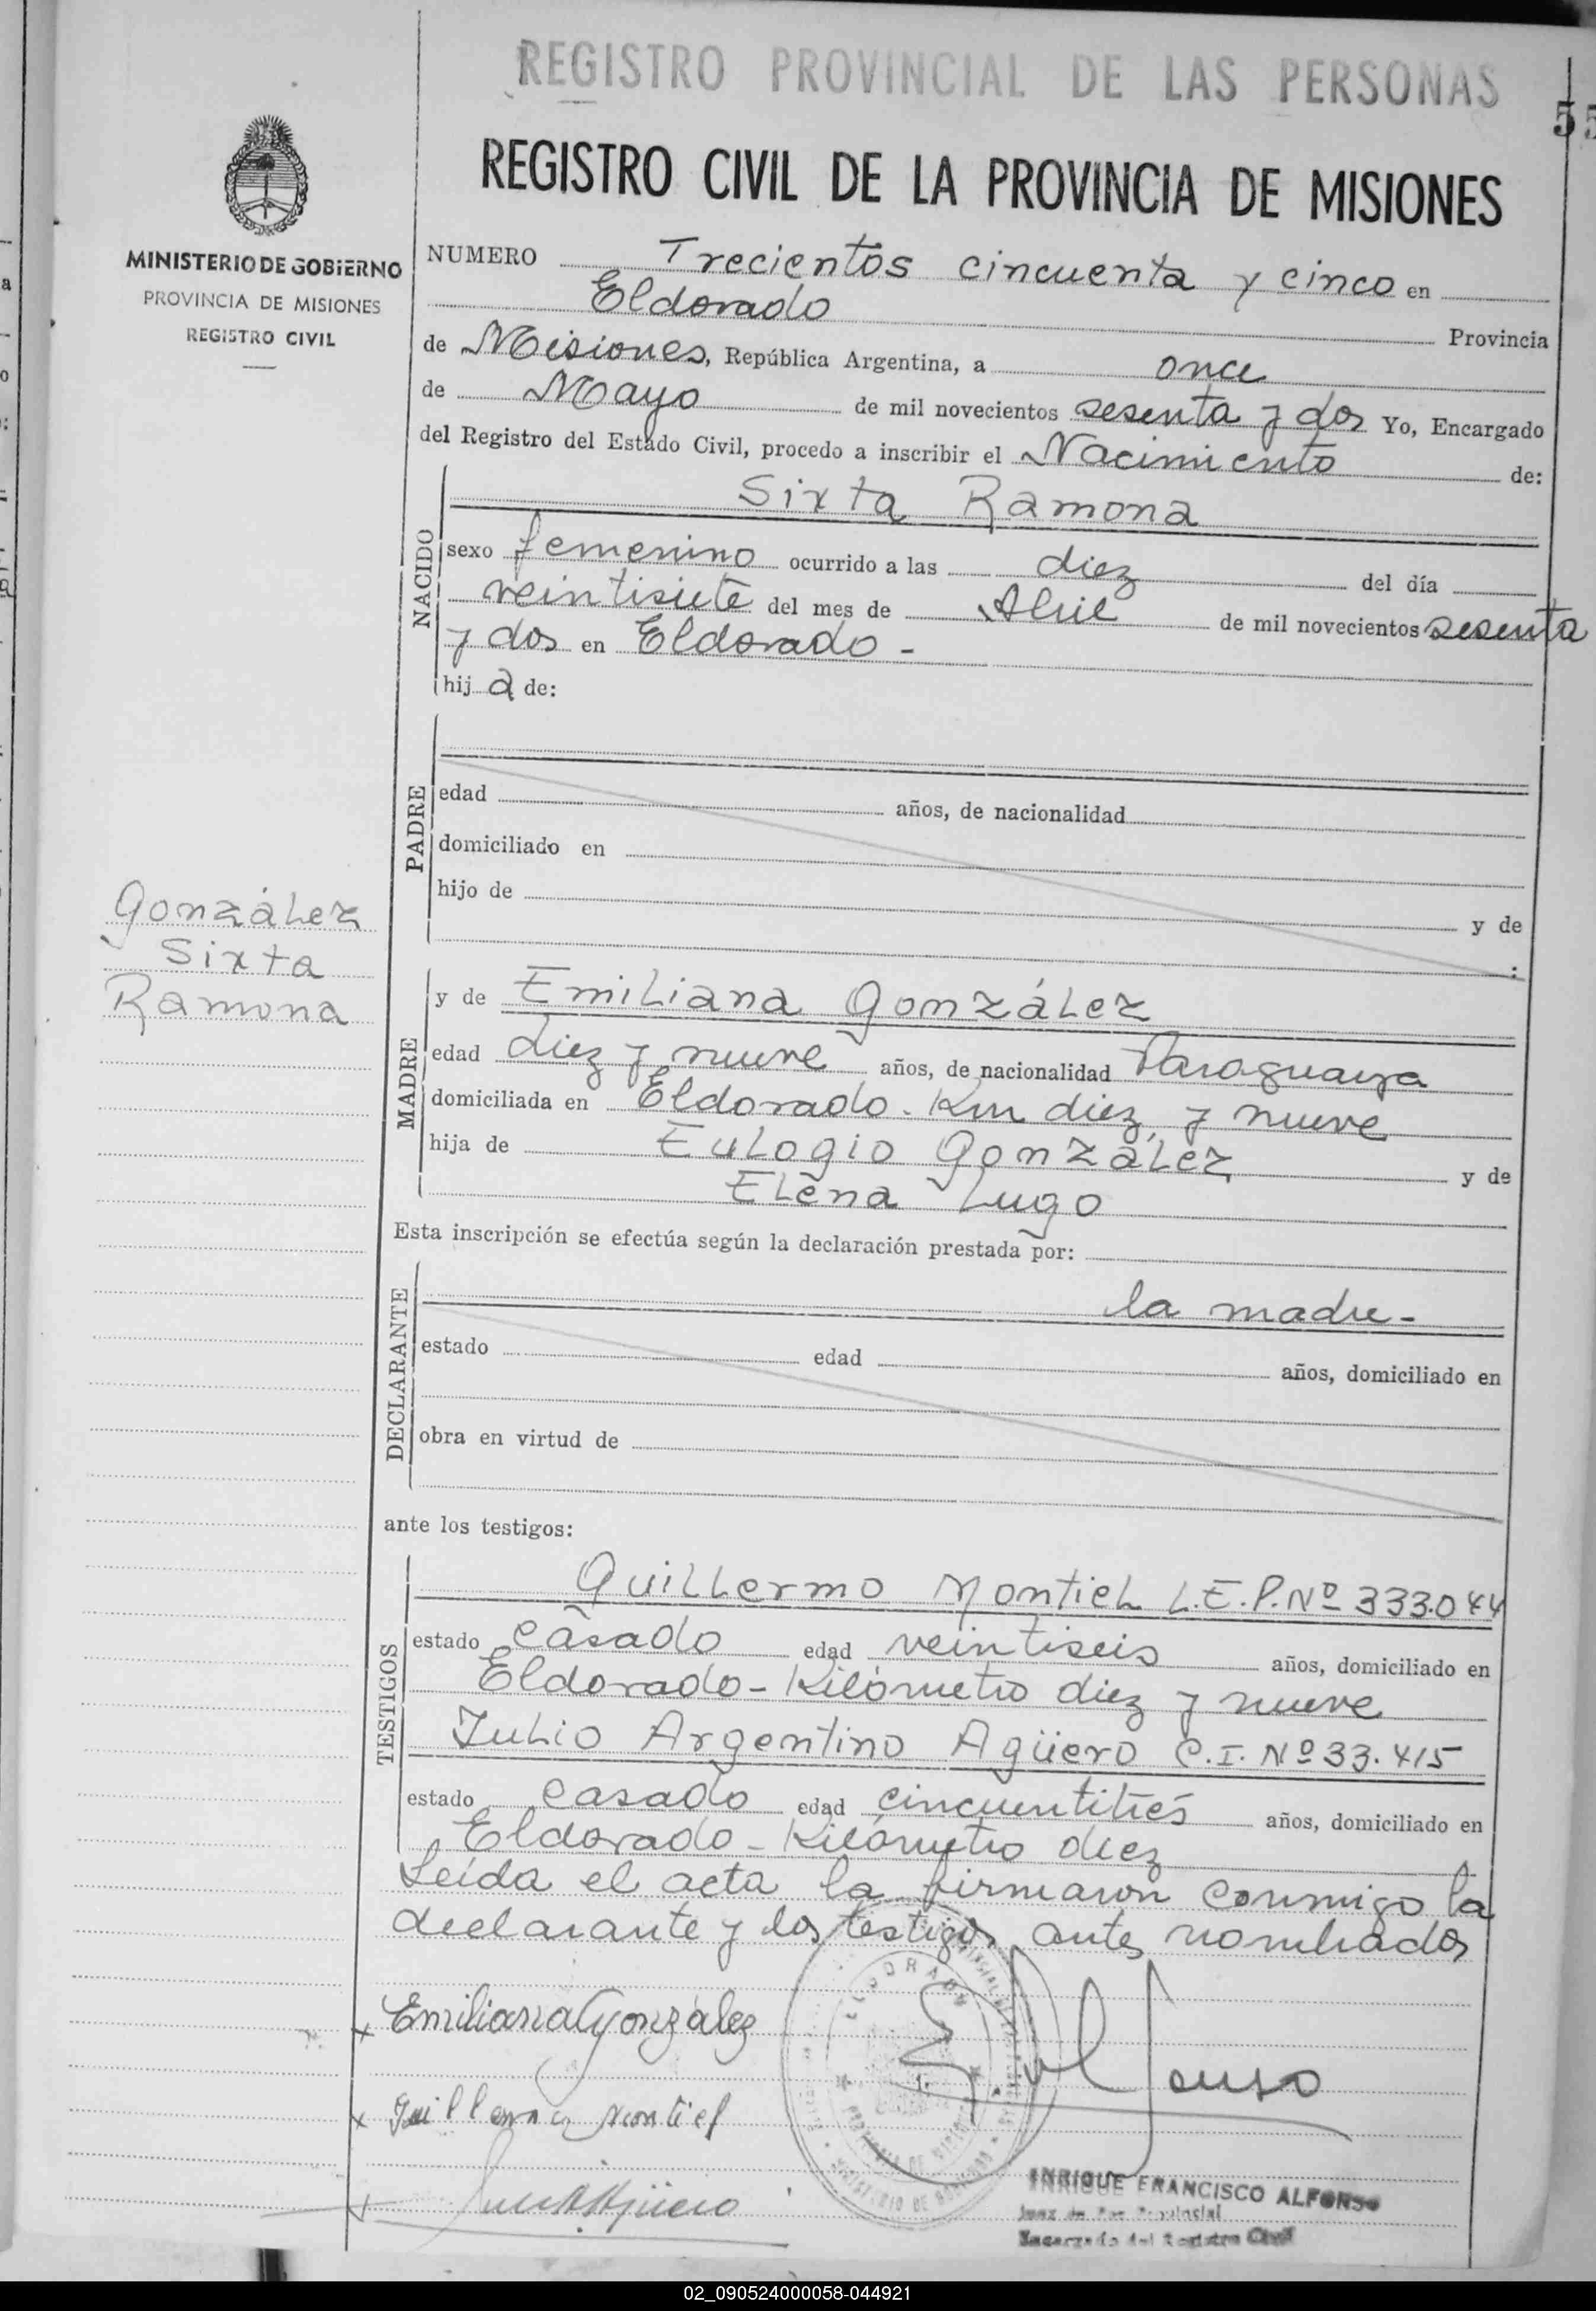 REGISTRO PROVINCIAL DE LAS PERSONAS
55
REGISTRO CIVIL DE LA PROVINCIA DE MISIONES
MINISTERIO DE GOBIERNO
PROVINCIA DE MISIONES
REGISTRO CIVIL
NUMERO Trecientos cincuenta y cinco en
Eldorado Provincia
de Misiones, República Argentina, a once
de Mayo de mil novecientos sesenta y dos Yo, Encargado
del Registro del Estado Civil, procedo a inscribir el Nacimiento de:
NACIDO
Sixta Ramona
sexo femenino ocurrido a las diez del día
veintisiete del mes de Abril de mil novecientos sesenta
y dos en Eldorado -
hij a de:
PADRE
edad años, de nacionalidad
domiciliado en
hijo de y de
:
González
Sixta
Ramona
MADRE
y de Emiliana González
edad diez y nueve años, de nacionalidad Paraguaya
domiciliada en Eldorado. Km diez y nueve
hija de Eulogio González y de
Elena Lugo
Esta inscripción se efectúa según la declaración prestada por:
DECLARANTE
la madre -
estado edad años, domiciliado en
obra en virtud de
ante los testigos:
TESTIGOS
Guillermo Montiel L.E.P.Nº 333.044
estado casado edad veintiseis años, domiciliado en
Eldorado - Kilómetro diez y nueve
Julio Argentino Agüero C.I. Nº 33.415
estado casado edad cincuentitrés años, domiciliado en
Eldorado - Kilómetro diez
Leída el acta la firmaron conmigo la
declarante y los testigos antes nombrados
x Emiliana González
ELDORADO
x Guillermo Montiel
x Agüero
ENRIQUE FRANCISCO ALFONSO
Juez de Paz Provincial
Encargado del Registro Civil
02_090524000058-044921